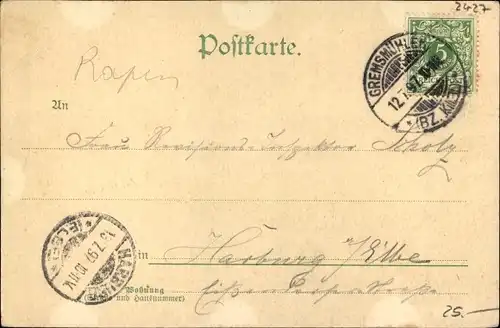 2427
Postkarte.
5
GREMSMÜHLEN
12.7.97.
(BZ. KIEL)
An
Frau Revisions-Inspektor Scholz
13.7.97
HARBURG
(ELBE)
in Harburg a/Elbe
Wohnung
(Straße und Hausnummer)
25.-